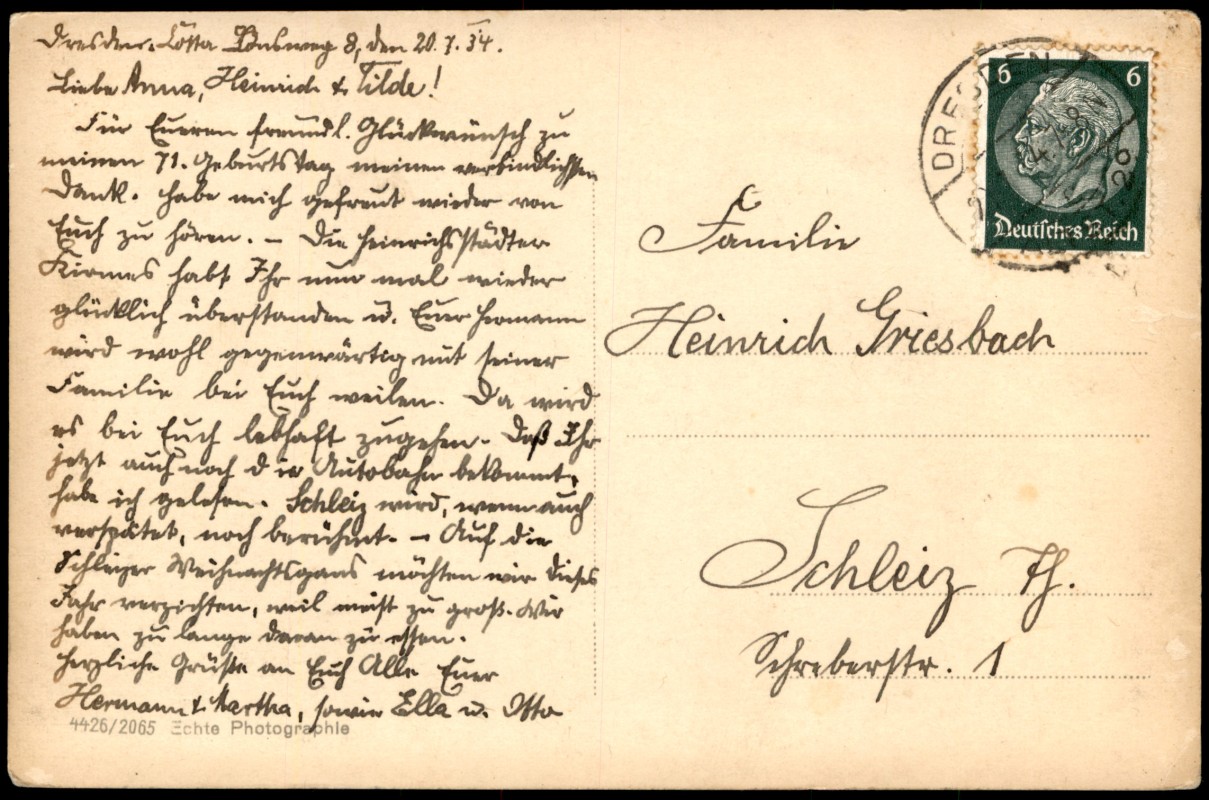 Dresden-Cotta Önsweg 8, den 20.7.34.
Liebe Anna, Heinrich & Tilde!
Für Eueren freundl. Glückwunsch zu
meinen 71. Geburtstag meinen verbindlichsten
Dank. Habe mich gefreut wieder von
Euch zu hören. – Die Heinrichsstädter
Kirmes habt Ihr nun mal wieder
glücklich überstanden u. Euer Hermann
wird wohl gegenwärtig mit seiner
Familie bei Euch weilen. Da wird
es bei Euch lebhaft zugehen. Daß Ihr
jetzt auch noch die Autobahn bekommt,
habe ich gelesen. Schleiz wird, wenn auch
verspätet, noch berühmt. – Auf die
Schleizer Weihnachtsgans möchten wir dieses
Jahr verzichten, weil meist zu groß. Wir
haben zu lange daran zu essen.
Herzliche Grüße an Euch Alle Euer
Hermann & Martha, sowie Ella u. Otto
4426/2065 Echte Photographie
DRESDEN
6 6
Deutsches Reich
Familie
Heinrich Griesbach
Schleiz Th.
Schreberstr. 1